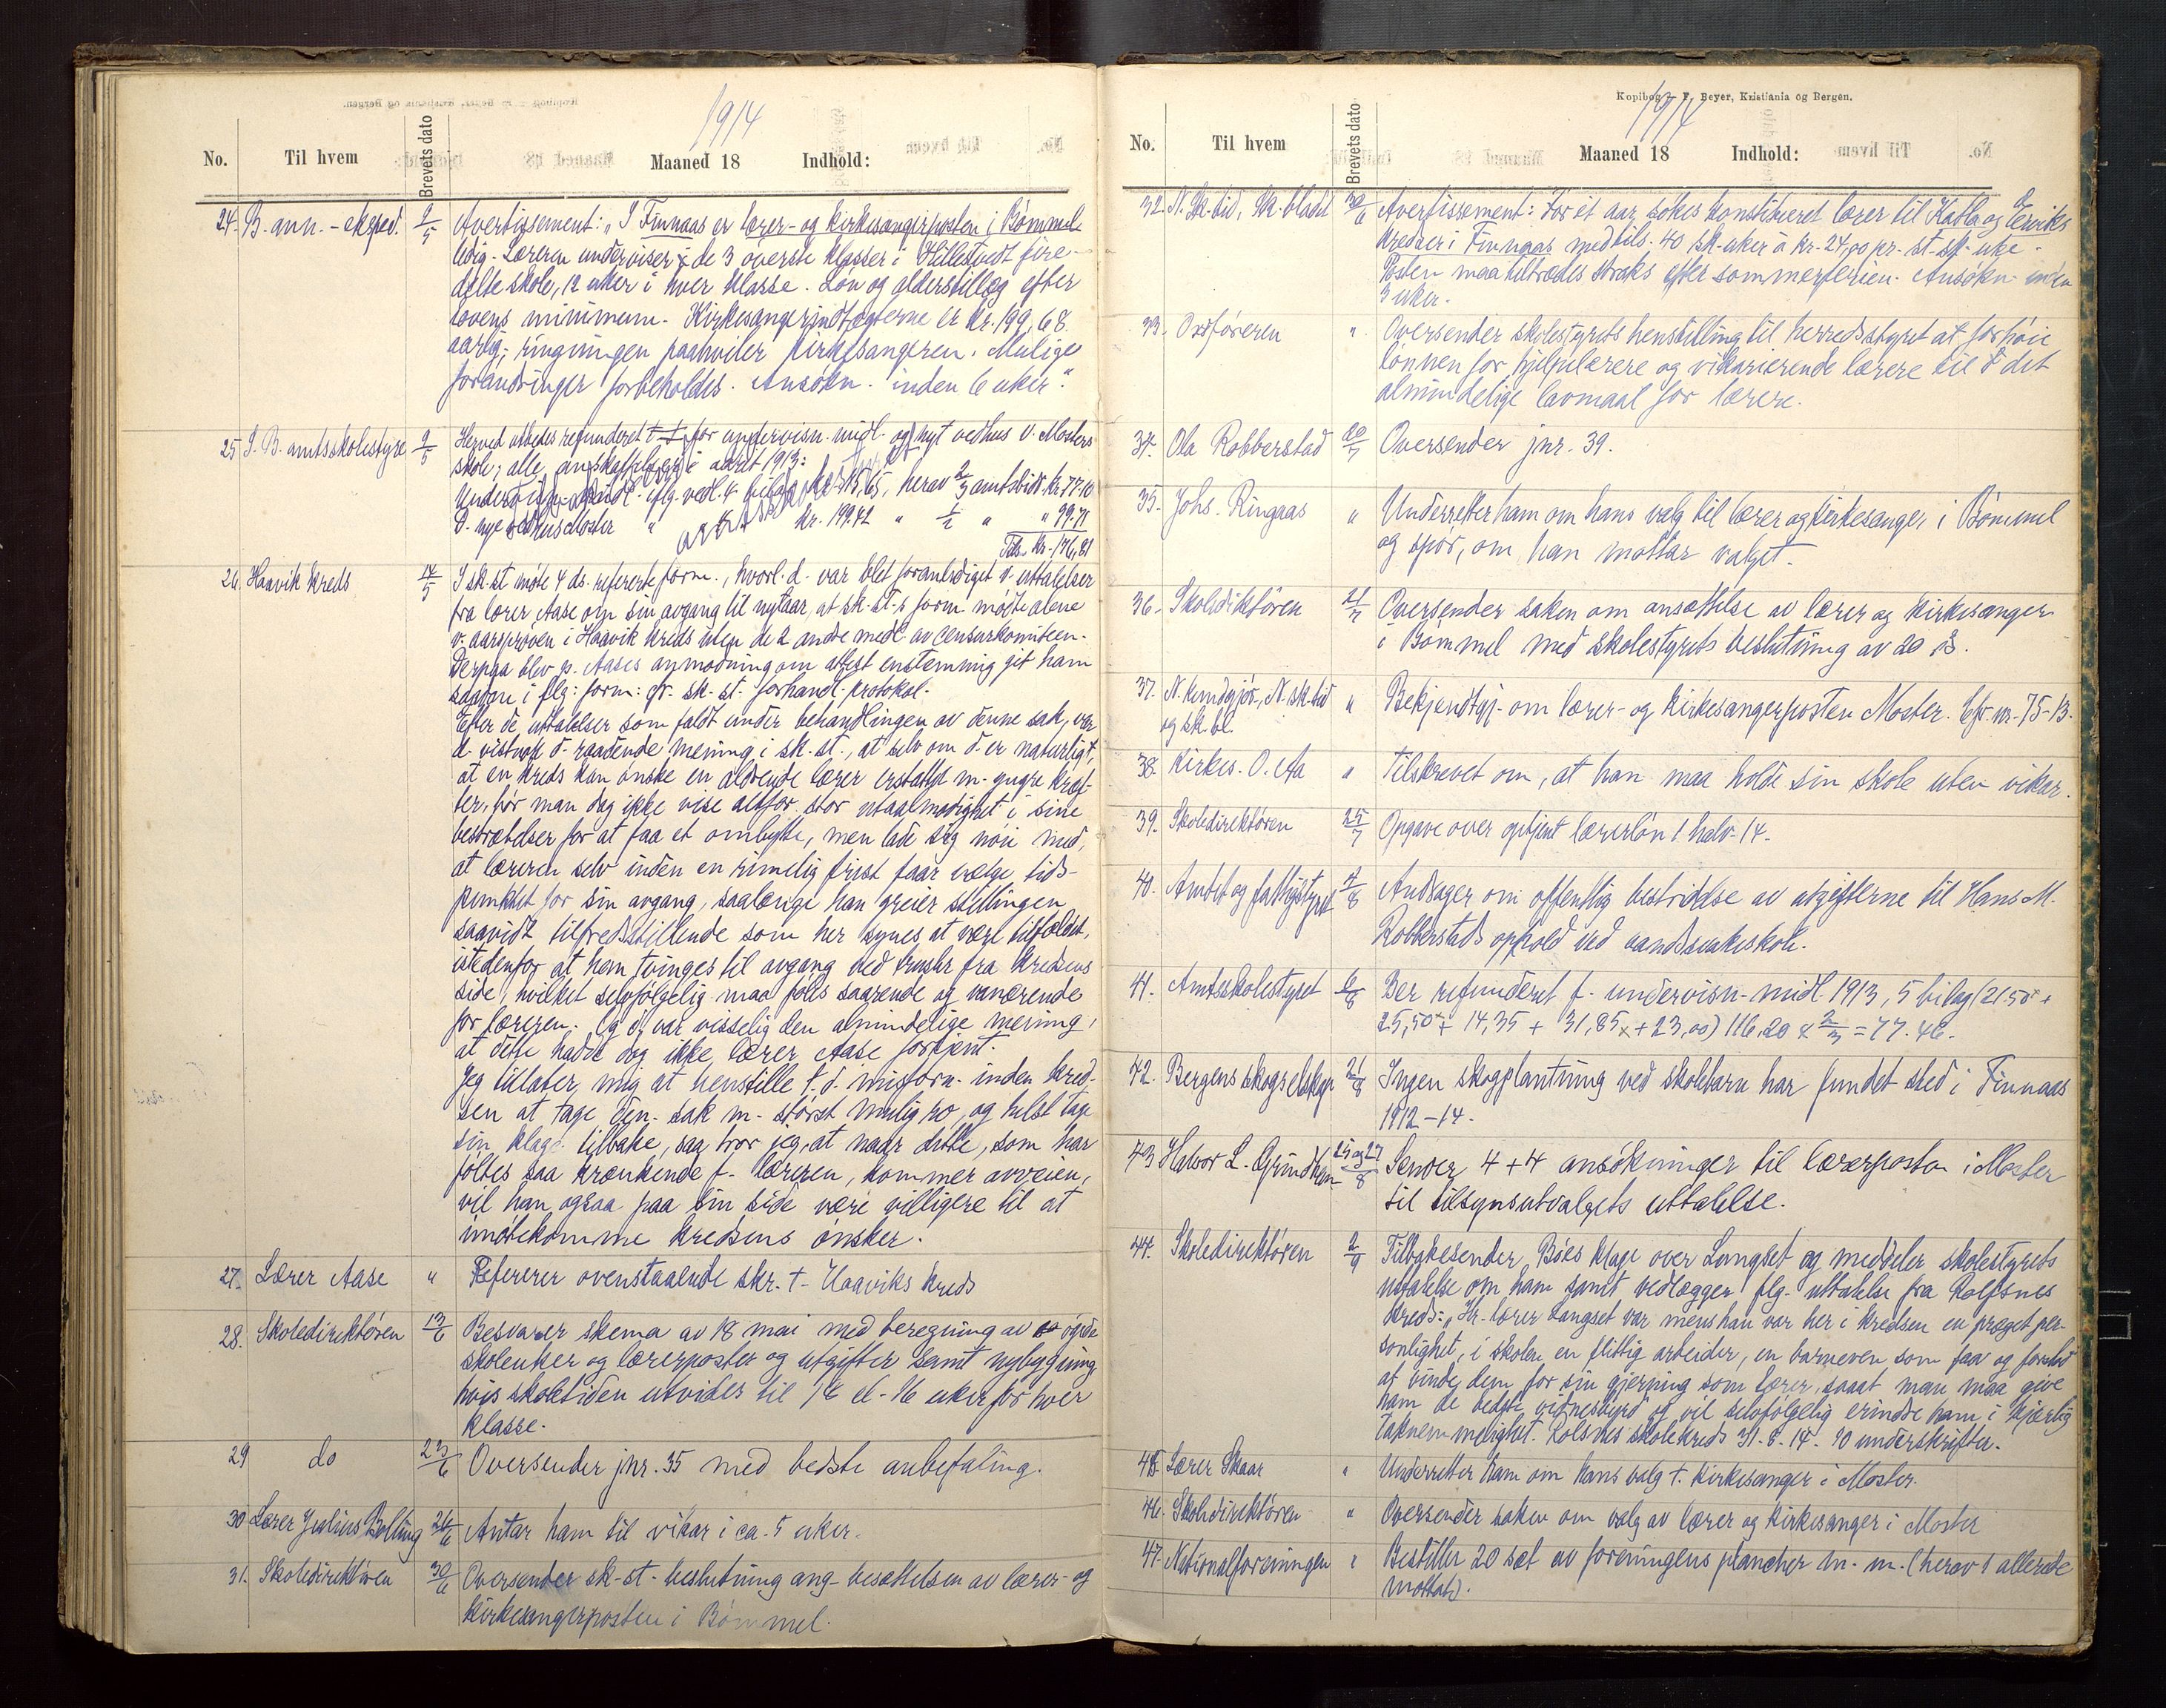 1914
No. Til hvem Brevets dato Maaned 18 Indhold:
24. B. ann. - eksped. 9/5 Avertissement: „I Finnaas er lærer- og kirkesangerposten i Bømmel
ledig. Læreren underviser i de 3 øverste klasser i Hillestvedt fire-
delte skole, 12 uker i hver klasse. Løn og alderstillæg efter
lovens minimum. Kirkesangerindtægterne er kr. 199,68
aarlig; ringningen paahviler kirkesangeren. Mulige
forandringer forbeholdes. Ansøkn. inden 6 uker."
25. S. B. amtsskolestyre 9/5 Herved utbedes refunderet for undervisn. midl. og nyt vedhus v. Mosters
skole; alle anskaffelser i aaret 1913:
Undervisn. midl. iflg. vedl. 4 bilag kr. 115,65, herav 2/3 amtsbidr. kr. 77.10
D. nye vedhus Moster " kr. 199.42 " 1/2 " " 99.71
Tils. kr. 176,81
26. Haavik kreds 14/5 I sk. st. møte 4 ds. refererte form., hvorl. d. var blet foranlediget v. uttalelser
fra lærer Aase om sin avgang til nytaar, at sk. st.s form. møtte alene
v. aarsprøven i Haavik kreds uten de 2 andre medl. av censurkomiteen.
Derpaa blev p. Aases anmodning om attest enstemmig git ham
saadan i flg. form: cfr. sk. st. forhandl. protokol.
Efter de uttalelser som faldt under behandlingen av denne sak, var
d. vistnok d. raadende mening i sk. st., at selv om d. er naturligt,
at en kreds kan ønske en aldrende lærer erstattet m. yngre kræf-
ter, bør man dog ikke vise altfor stor utaalmodighet i sine
bestræbelser for at faa et ombytte, men lade sig nøie med,
at læreren selv inden en rimelig frist faar vælge tids-
punktet for sin avgang, saalænge han greier stillingen
saavidt tilfredsstillende som her synes at være tilfældet,
istedenfor at han tvinges til avgang ved trusler fra kredsens
side, hvilket selvfølgelig maa føles saarende og vanærende
for læreren. Og d. var visselig den almindelige mening,
at dette hadde dog ikke lærer Aase fortjent.
Jeg tillater mig at henstille t. d. misforn. inden kred-
sen at tage den sak m. størst mulig ro, og helst tage
sin klage tilbake, saa tror jeg, at naar dette, som har
føltes saa krænkende f. læreren, kommer avveien,
vil han ogsaa paa sin side være villigere til at
imøtekomme kredsens ønsker.
27. Lærer Aase " Refererer ovenstaaende skr. t. Haaviks kreds
28. Skoledirektøren 13/6 Besvarer skema av 18 mai med beregning av økede
skoleuker og lærerposter og utgifter samt nybygning
hvis skoletiden utvides til 14 el. 16 uker for hver
klasse.
29 do 23/6 Oversender jnr. 35 med bedste anbefaling.
30 Lærer Julius Bolling 26/6 Antar ham til vikar i ca. 5 uker.
31. Skoledirektøren 30/6 Oversender sk. st. beslutning ang. besættelsen av lærer- og
kirkesangerposten i Bømmel.
Kopibog - F. Beyer, Kristiania og Bergen.
1914
No. Til hvem Brevets dato Maaned 18 Indhold:
32. N. Sk. tid, Sk. bladet 30/6 Avertissement: For et aar søkes konstitueret lærer til Katla og Eeiviks
kredser i Finnaas med tils. 40 sk. uker à kr. 24,00 pr. st. sk. uke.
Posten maa tiltrædes straks efter sommerferien. Ansøkn. inden
3 uker.
33. Ordføreren " Oversender skolestyrets henstilling til herredsstyret at forhøie
lønnen for hjelpelærere og vikarierende lærere til det
almindelige lavmaal for lærere.
34. Ola Robberstad 20/7 Oversender jnr. 39.
35. Johs. Ringaas " Underretter ham om hans valg til lærer og kirkesanger i Bømmel
og spør, om han mottar valget.
36. Skoledirektøren 21/7 Oversender saken om ansættelse av lærer og kirkesanger
i Bømmel med skolestyrets beslutning av 20 ds.
37. N. kundgjør., N. sk. tid " Bekjendtgj. om lærer- og kirkesangerposten Moster. Cfr. nr. 75-13.
og sk. bl.
38. Kirkes. O. Aa " Tilskrevet om, at han maa holde sin skole uten vikar.
39. Skoledirektøren 25/7 Opgave over optjent lærerløn 1 halv. 14.
40. Amtet og fattigstyret 4/8 Andrager om offentlig bestridelse av utgifterne til Hans M.
Robberstads ophold ved aandssvakeskole.
41. Amtsskolestyret 6/8 Ber refunderet f. undervisn. midl. 1913, 5 bilag (21.50 +
25,50 + 14,35 + 31,85 + 23,00) 116,20 x 2/3 = 77.46.
42. Bergens skogselskap 21/8 Ingen skogplantning ved skolebarn har fundet sted i Finnaas
1912-14.
43 Halvor L. Grindheim 25 og 27/8 Sender 4+4 ansøkninger til lærerposten i Moster
til tilsynsutvalgets uttalelse.
44. Skoledirektøren 2/9 Tilbakesender Bøes klage over Langset og meddeler skolestyrets
uttalelse om ham samt vedlægger flg. uttalelse fra Rolfsnes
kreds: „Hr. lærer Langset var mens han var her i kredsen en præget per-
sonlighet, i skolen en flittig arbeider, en barneven som faa og forstod
at vinde dem for sin gjerning som lærer, saaat man maa give
ham de bedste vidnesbyrd og vil selvfølgelig erindre ham i kjærlig
taknemmelighet. Rolfsnes skolekreds 31-8-14. 10 underskrifter.
45. Lærer Skaar " Underretter ham om hans valg t. kirkesanger i Moster.
46. Skoledirektøren " Oversender saken om valg av lærer og kirkesanger i Moster
47. Nationalforeningen " Bestiller 20 sæt av foreningens plancher m. m. (herav 1 allerede
mottat).